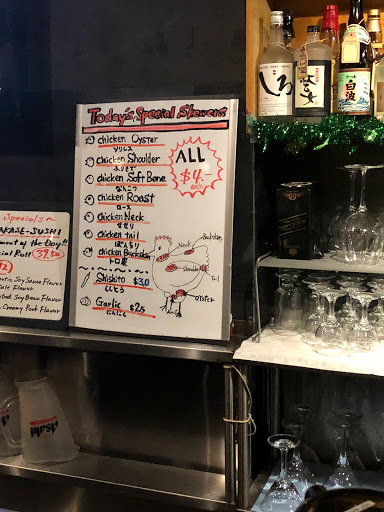 Today's Special Skewers
chicken Oyster
ソリレス
chicken Shoulder
ふりそで
chicken Soft Bone
なんこつ
chicken Roast
ロース
chicken Neck
せせり
chicken tail
ぼんちり
chicken Backskin
Shishito $3.0
ししとう
Garlic $2.5
にんにく
ALL
$4.-
each
Neck
Backskin
Shoulder
Tail
Oyster
Specials
KASE-SUSHI
ment of the Day!!
cial Roll 37.50
Soy Sauce Flavor
Flavor
Soy Bean Flavor
Creamy Pork Flavor
Asahi
しろ
白波